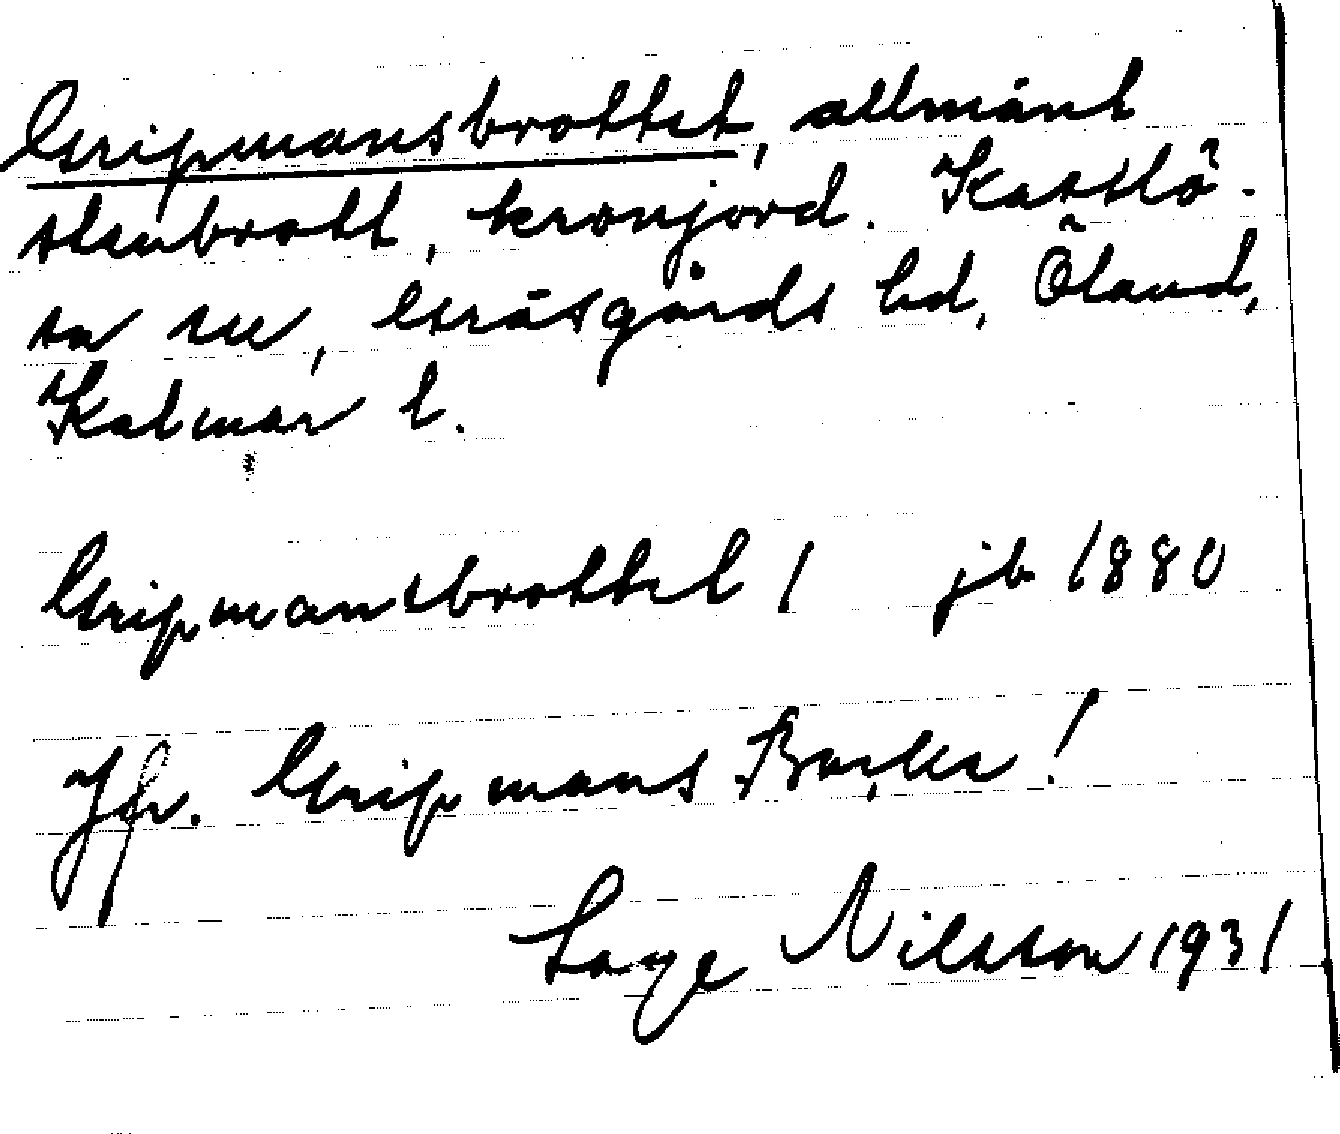 Gripmansbrottet, allmänt
stenbrott, kronjord. Kastlö-
sa sn, Gräsgårds hd, Öland,
Kalmar l.
Gripmansbrottet 1 jb 1880
Jfr. Gripmans Backe!
Sage Nilsson 1931